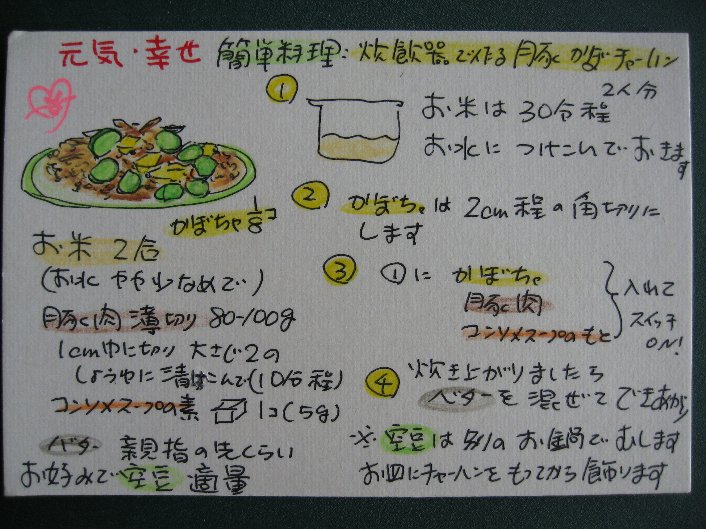 元気・幸せ 簡単料理:炊飯器で作る豚かぼチャーハン
2人分
かぼちゃ 1/8コ
お米 2合
(お水 やや少なめで)
豚肉 薄切り 80-100g
1cm巾に切り 大さじ2の
しょうゆに漬けこんで(10分程)
コンソメスープの素 1コ(5g)
バター 親指の先くらい
お好みで空豆 適量
① お米は30分程
お水に つけこんでおきます
② かぼちゃは2cm程の角切りに
します
③ ①に かぼちゃ
豚肉
コンソメスープのもと
入れて
スイッチ
ON!
④ 炊き上がりましたら
バターを混ぜて できあがり
※空豆は別のお鍋でむします
お皿にチャーハンをもってから飾ります